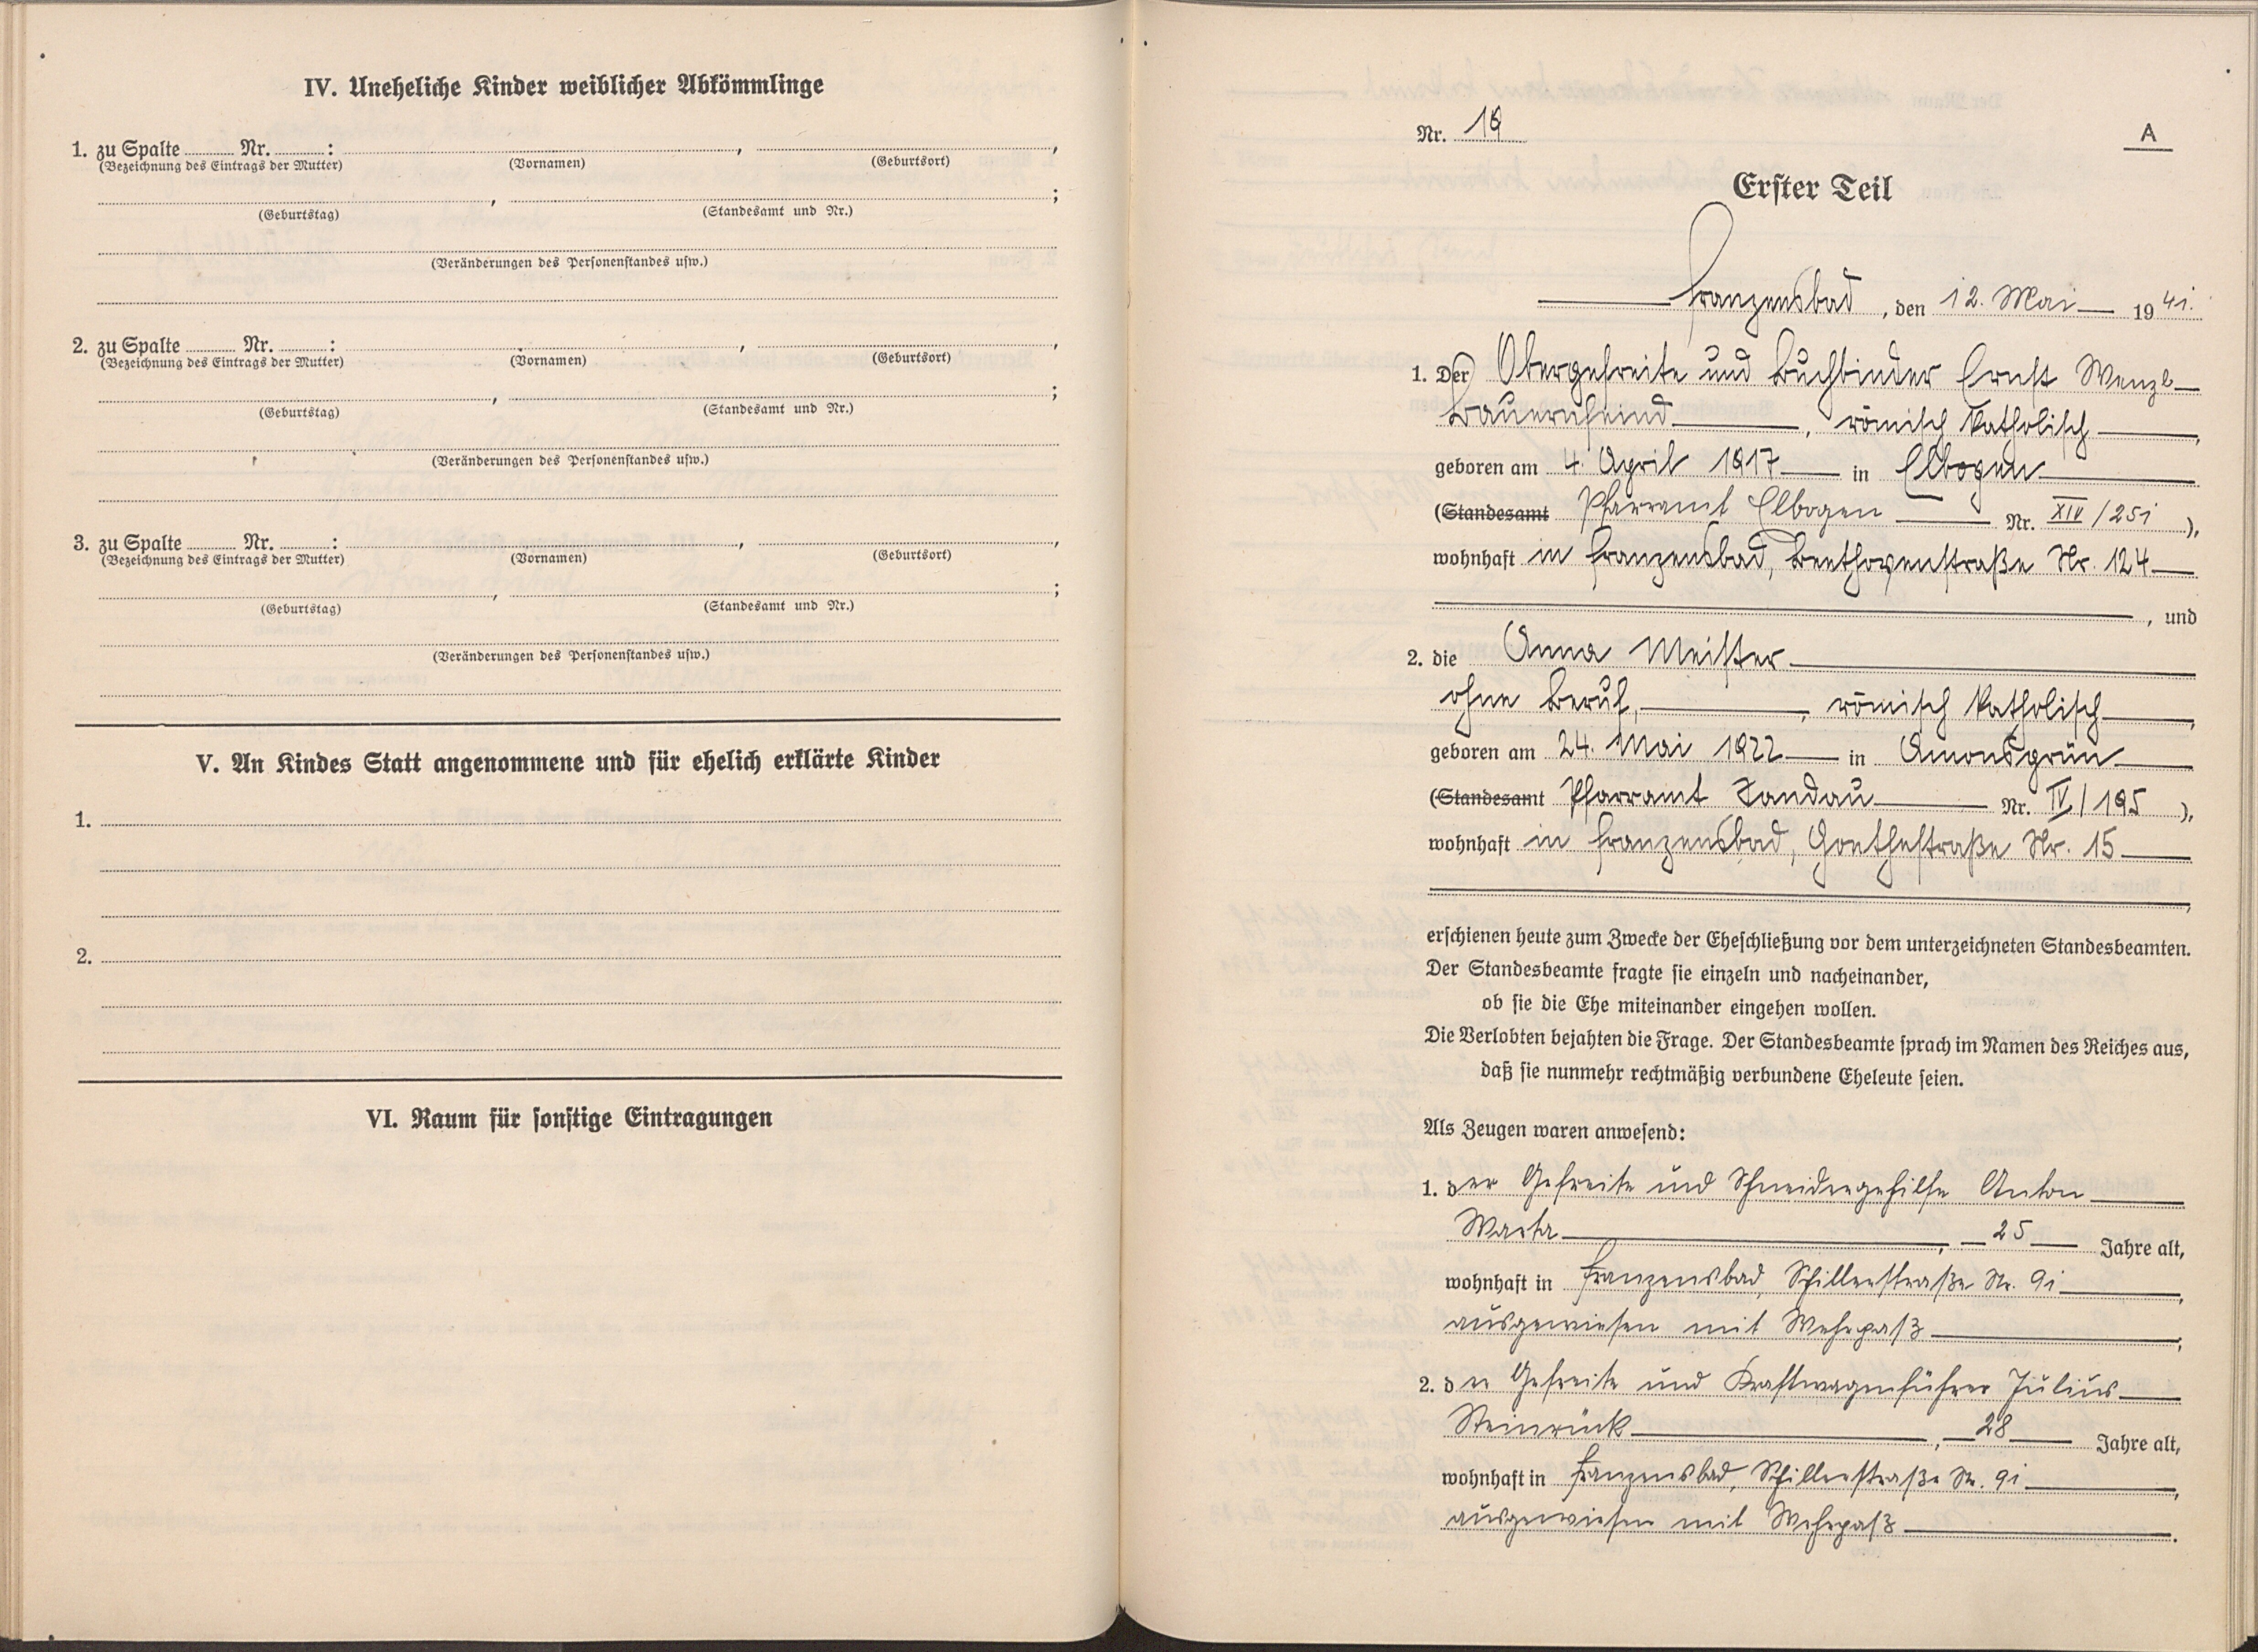 IV. Uneheliche Kinder weiblicher Abkömmlinge
1. zu Spalte ........ Nr. ........: ........, ........,
(Bezeichnung des Eintrags der Mutter) (Vornamen) (Geburtsort)
........, ........;
(Geburtstag) (Standesamt und Nr.)
(Veränderungen des Personenstandes usw.)
2. zu Spalte ........ Nr. ........: ........, ........,
(Bezeichnung des Eintrags der Mutter) (Vornamen) (Geburtsort)
........, ........;
(Geburtstag) (Standesamt und Nr.)
(Veränderungen des Personenstandes usw.)
3. zu Spalte ........ Nr. ........: ........, ........,
(Bezeichnung des Eintrags der Mutter) (Vornamen) (Geburtsort)
........, ........;
(Geburtstag) (Standesamt und Nr.)
(Veränderungen des Personenstandes usw.)
V. An Kindes Statt angenommene und für ehelich erklärte Kinder
1.
2.
VI. Raum für sonstige Eintragungen
Nr. 19
A
Erster Teil
Franzensbad, den 12. Mai 1941.
1. Der Obergefreite und Buchbinder Ernst Wenzl
Bauernfeind, römisch katholisch,
geboren am 4. April 1917 in Elbogen
(Standesamt Pfarramt Elbogen Nr. XIV/251),
wohnhaft in Franzensbad, Beethovenstraße Nr. 124
, und
2. die Anna Meister
ohne Beruf, römisch katholisch,
geboren am 24. Mai 1922 in Amonsgrün
(Standesamt Pfarramt Sandau Nr. IV/195),
wohnhaft in Franzensbad, Goethestraße Nr. 15
erschienen heute zum Zwecke der Eheschließung vor dem unterzeichneten Standesbeamten.
Der Standesbeamte fragte sie einzeln und nacheinander,
ob sie die Ehe miteinander eingehen wollen.
Die Verlobten bejahten die Frage. Der Standesbeamte sprach im Namen des Reiches aus,
daß sie nunmehr rechtmäßig verbundene Eheleute seien.
Als Zeugen waren anwesend:
1. der Gefreite und Schneidergehilfe Anton
Warta, 25 Jahre alt,
wohnhaft in Franzensbad, Schillerstraße Nr. 91,
ausgewiesen mit Wehrpaß;
2. der Gefreite und Kraftwagenführer Julius
Steinrück, 28 Jahre alt,
wohnhaft in Franzensbad, Schillerstraße Nr. 91,
ausgewiesen mit Wehrpaß.